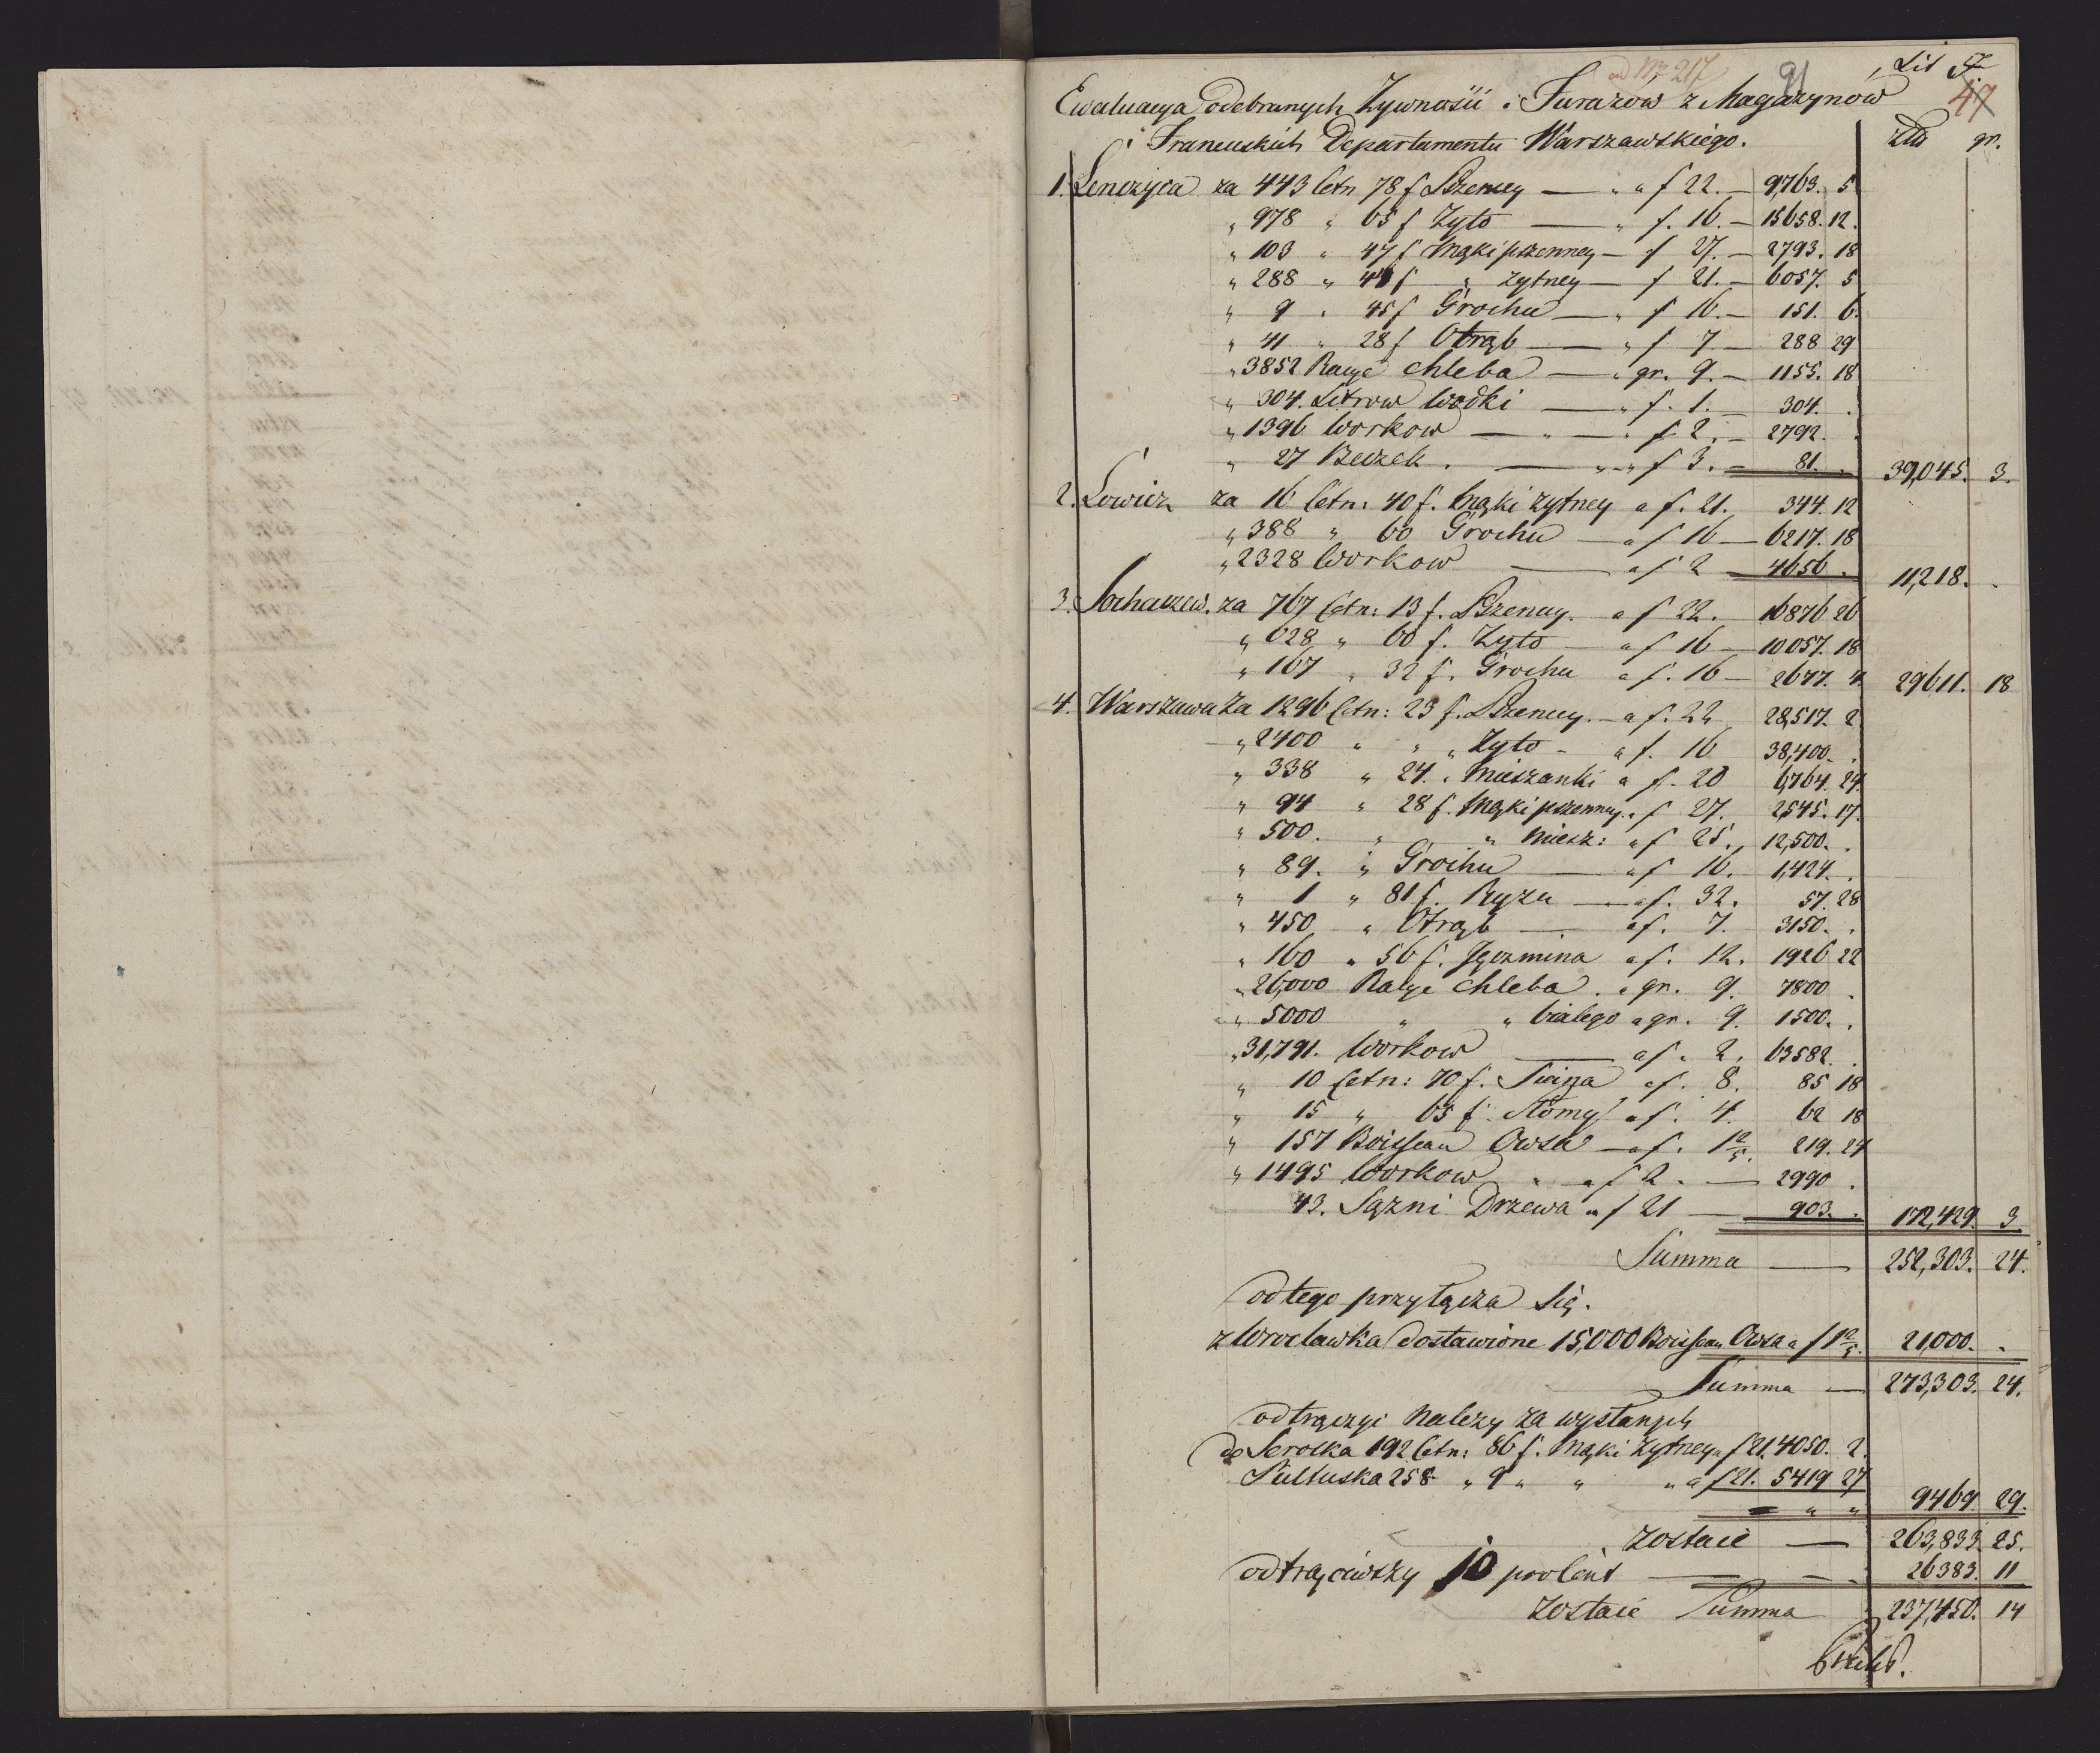 ad Nr 217 91 Lit F
47
Ewaluacya odebranych Zywnosii i Furazow z Magazynow
Francuskich Departamentu Warszawskiego. Złł gr.
1. Lenczyca za 443 Cetn 78 f Pszenicy — " a f 22. — 9,763. 5
" 978 " 65 f Zyto — " f. 16. — 15658. 12.
" 103 " 47 f Mąki pszenney — f 27. — 2793. 18
" 288 " 44 f " zytney — f 21. — 6057. 5
" 9 " 45 f Grochu — " f 16. — 151. 6.
" 41 " 28 f Otrąb — " f 7. — 288 29
" 3852 Racye Chleba — " gr. 9. — 1155. 18
" 304. Litrow Wodki — " f. 1. — 304. .
" 1396 Workow — " — " f 2. — 2792. .
" 27 Beczek . — " " f 3. — 81. . 39,045. 3.
2. Lowicz za 16 Cetn: 40 f. Mąki zytney a f. 21. 344. 12
" 388 " 60 Grochu — a f 16 — 6217. 18
" 2328 Workow — a f 2 — 4656 . 11,218. .
3. Sochaczew. za 767 Cetn: 13 f. Pszenicy. a f 22. 16876 26
" 628 " 60 f. Zyto — a f 16 — 10057. 18
" 167 " 32 f. Grochu a f. 16 — 2677. 4. 29611. 18
4. Warszawa Za 1296 Cetn: 23 f. Pszenicy. — a f. 22 28,517. 2
" 2400 " " " Zyto — a f. 16 38,400. .
" 338 " 24. " Mieszanki a f. 20 6,764. 24.
" 94 " 28 f. Mąki pszenney. a f 27. 2,545. 17.
" 500. " " Miesz: a f 25. 12,500. .
" 89. " Grochu — a f 16. 1,424. .
" 1 " 81 f. Ryzu — a f. 32. 57. 28
" 450 " Otrąb — a f. 7. 3150. .
" 160 " 56 f. Jęczmina a f. 12. 1926 22
" 26,000 Racye Chleba. a gr. 9. 7800 .
" 5000 " " białego a gr. 9. 1500. .
" 31,791. Workow — a f. 2. 63582. .
" 10 Cetn: 70 f. Siana a f. 8. 85 18
" 15 " 65 f. Słomy a f. 4. 62 18
" 157 Boisseau Owsa — a f. 1 2/5. 219. 24
" 1495 Workow " a f 2. — 2990 .
43. Sązni Drzewa a f 21 — 903. . 172,429. 3.
Summa — 252,303. 24.
od tego przyłącza się.
z Wrocławka dostawione 15,000 Boisseau Owsa a f 1 2/5. 21,000. .
Summa — 273,303. 24.
odtrączyc nalezy za wysłanych
do Serocka 192 Cetn: 86 f. Mąki zytney a f 21. 4050. 2.
Pultuska 258 " 9 " " " a f 21. 5419 27
" " 9469 29.
Zostaie — 263,833. 25.
odtrąciwszy 10 procent — 26383. 11
Zostaie Summa 237,450. 14